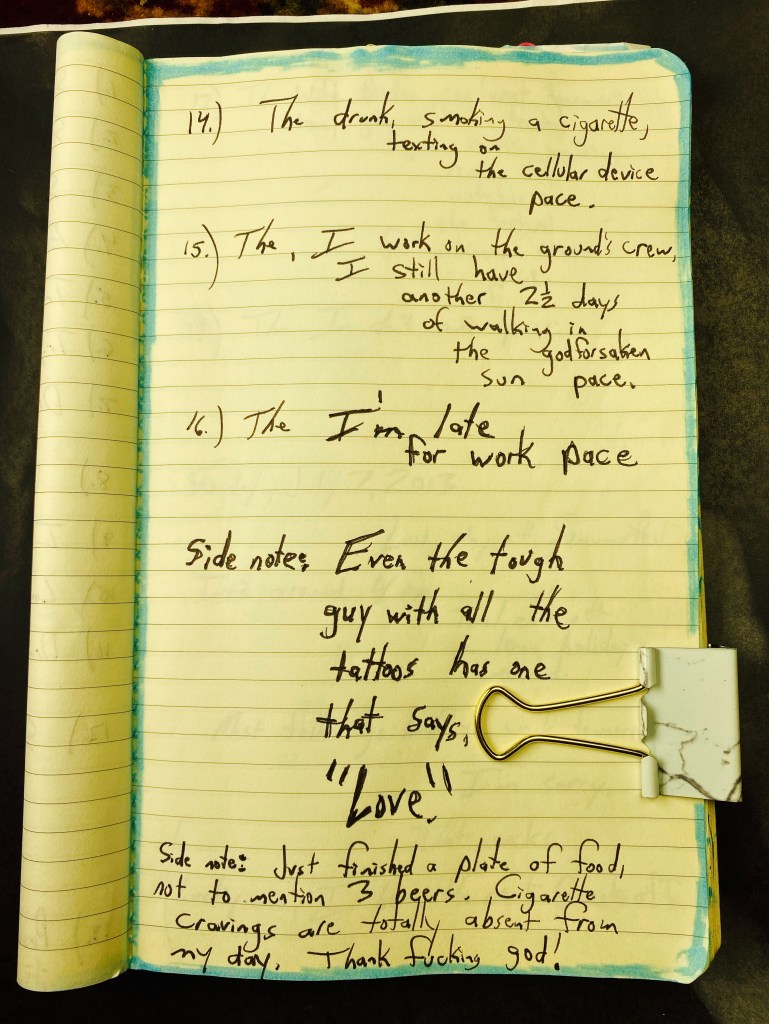 14.) The drunk, smoking a cigarette,
texting on
the cellular device
pace.
15.) The, I work on the ground's crew,
I still have
another 2½ days
of walking in
the godforsaken
sun pace.
16.) The I'm late
for work pace
Side note: Even the tough
guy with all the
tattoos has one
that says,
"Love."
Side note: Just finished a plate of food,
not to mention 3 beers. Cigarette
cravings are totally absent from
my day. Thank fucking god!